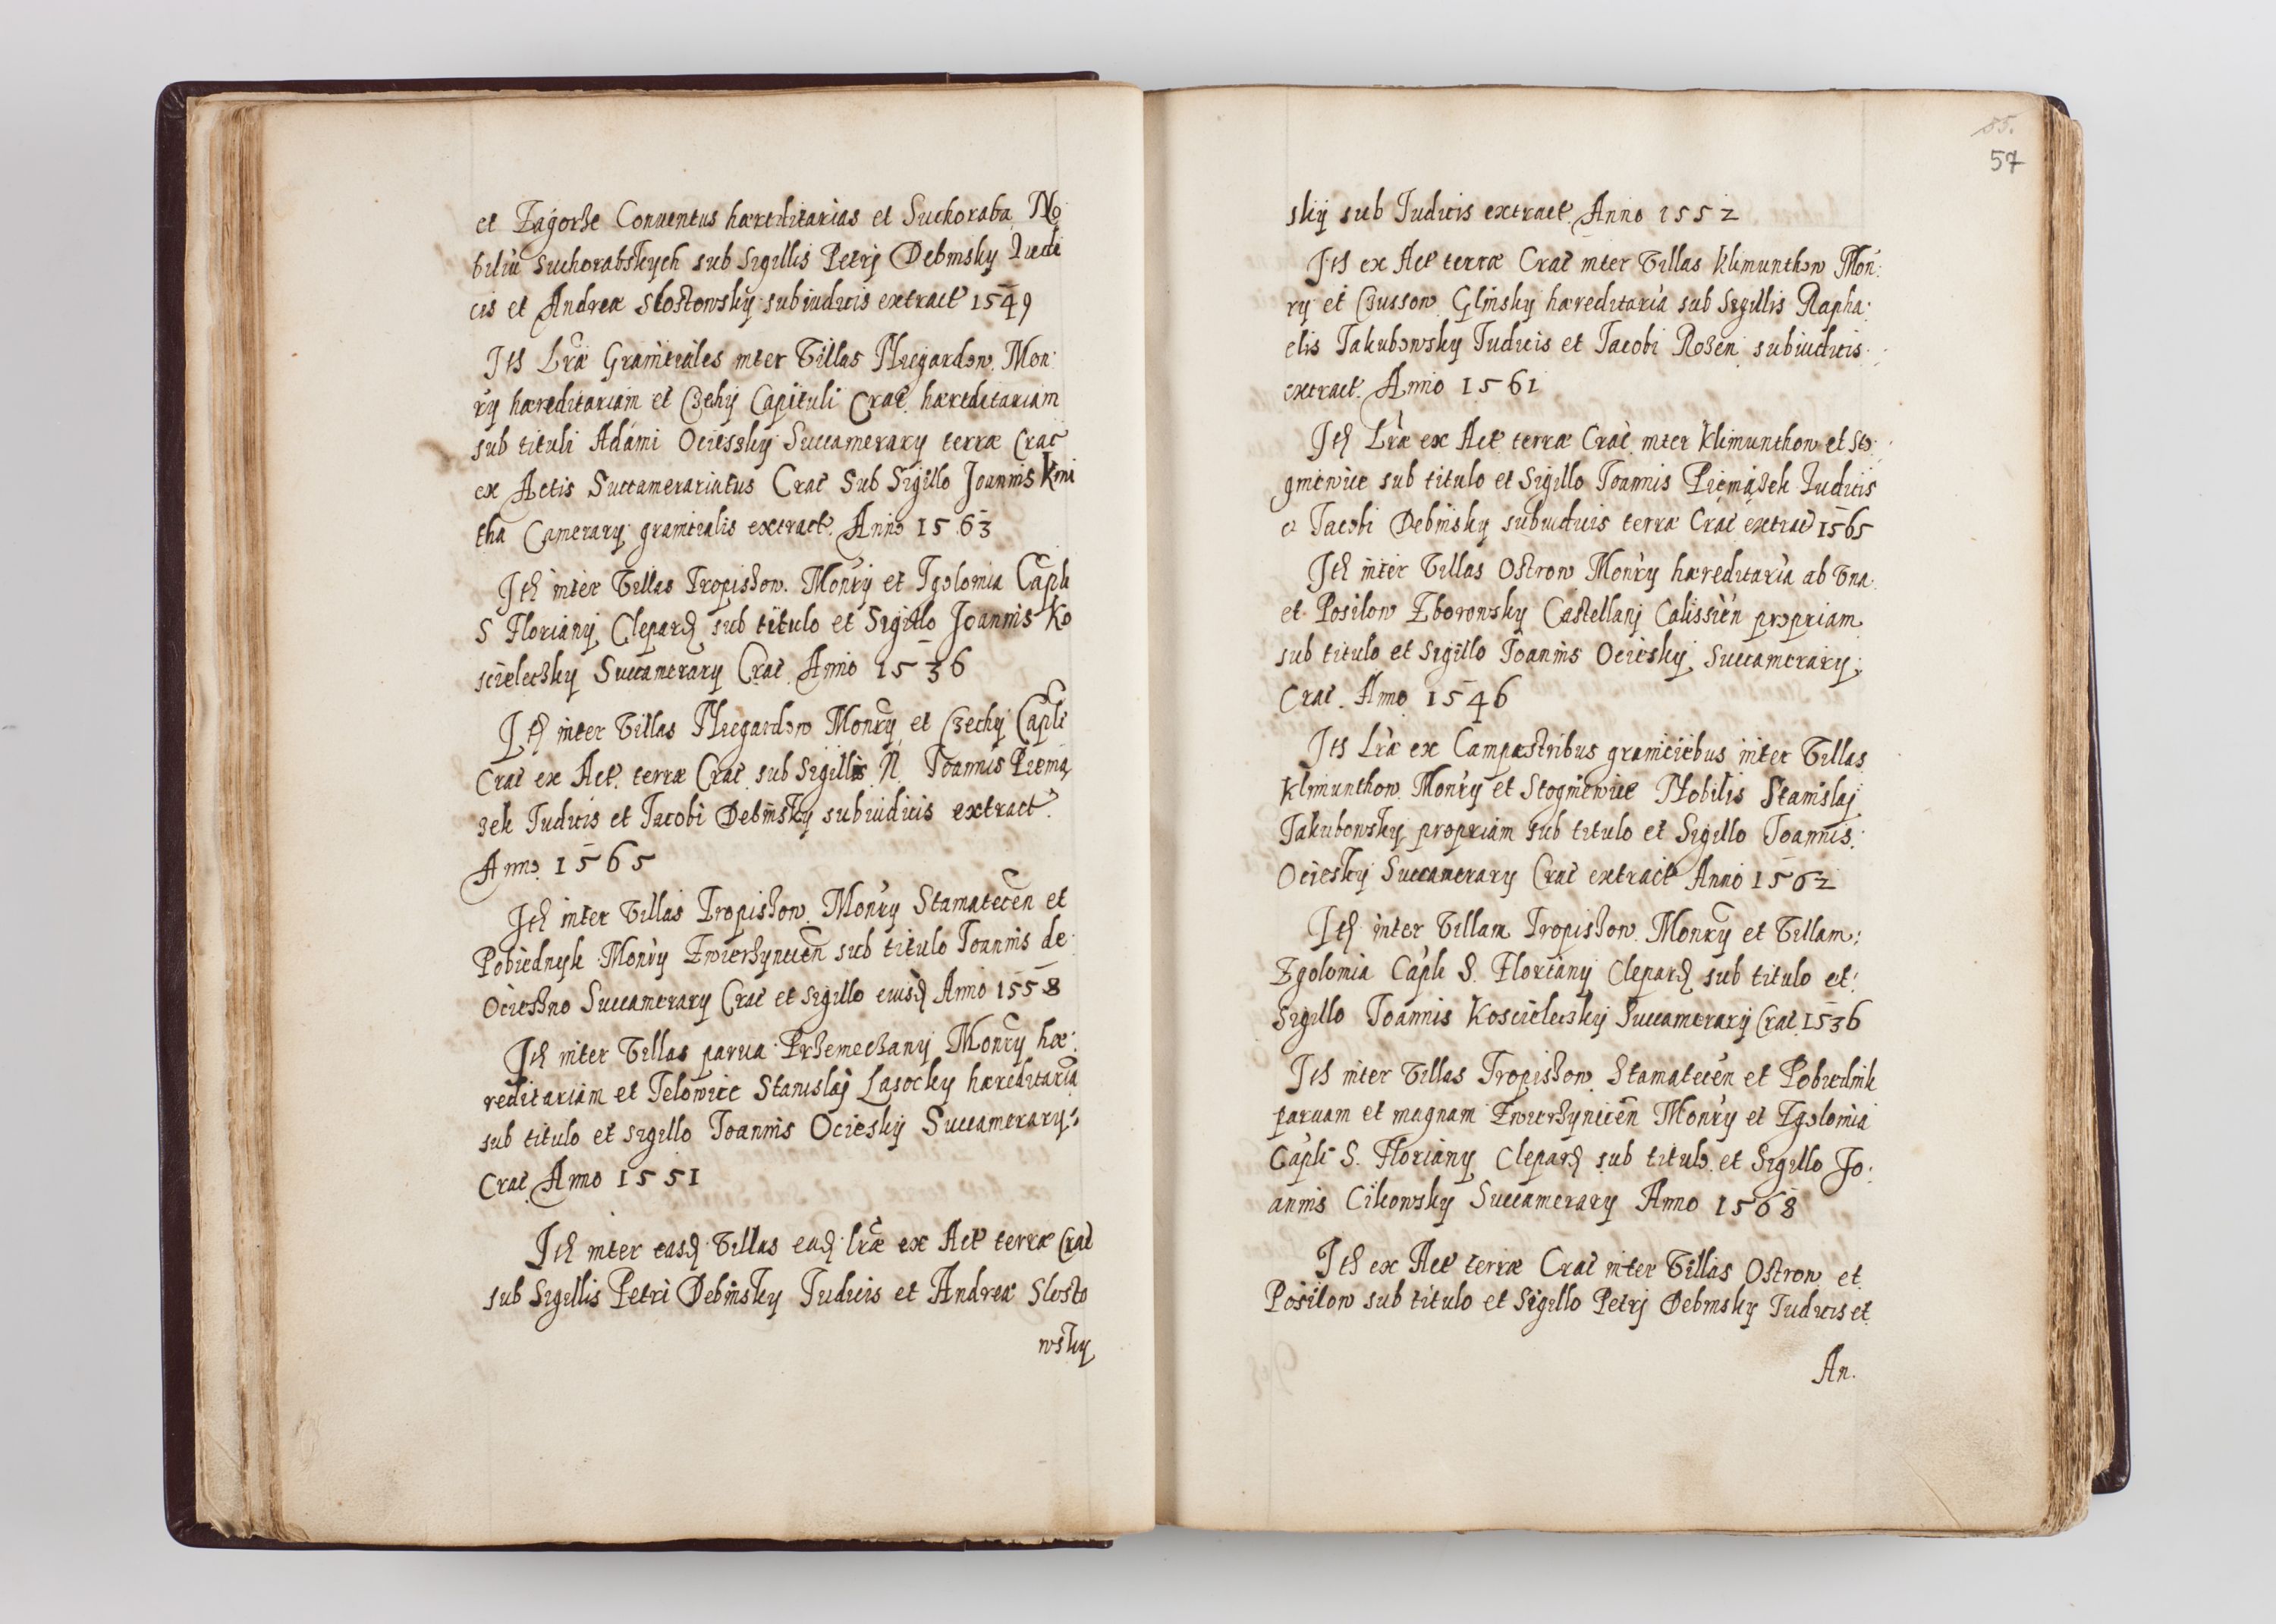 et Zagorze Conuentus hæreditarias et Suchoraba No
biliũ Suchorabskych sub Sigillis Petrj Debinsky Iudi
cis et Andreæ Slostowsky subiudicis extract 1549
Itẽ Lræ Granitiales inter Villas Mregardow Mon
ry hæreditariam et Czchy Capituli Crac. hæreditariam
sub tituli Adami Ociessky Succamerary terræ Crac
ex Actis Succamerariatus Crac Sub Sigillo Joannis Kmi
tha Camerary granicialis extract. Anno 1563
Itẽ inter Villas Tropiszow. Monry et Igolomia Capli
S Floriany Clepard sub titulo et Sigillo Joannis Ko
scieleczky Succamerary Crac Anno 1536
Itẽ inter Villas Mregardow Monry et Czechy Capli
Crac ex Act. terræ Crac. sub Sigillis N. Joannis Pienią
zek Iudicis et Jacobi Debinsky subiudicis extract.
Anno 1565
Itẽ inter Villas Tropiszow. Monry Staniatecen et
Pobiednyk Monry Zwierzyniecen sub titulo Joannis de
Ocieszno Succamerary Crac et Sigillo eiusd Anno 1558
Itẽ inter Villas parua Przemeczany Monry hæ:
reditariam et Telowice Stanislaj Lasocky hæreditaria
sub titulo et sigillo Joannis Ociesky Succamerary
Crac Anno 1551
Itẽ inter easd Villas ead lræ ex Act terræ Crac
sub Sigillis Petri Debinsky Iudicis et Andreæ Slosto
wsky
55.
57
skij sub Iudicis extract. Anno 1552
Itẽ ex Act terræ Crac inter Villas Klimunthow Mon:
ry et Czusson Glinsky hæreditaria sub Sigillis Rapha:
elis Jakubowsky Iudicis et Jacobi Rozen subiudicis
extract. Anno 1561
Itẽ Lræ ex Act terræ Crac. inter Klimunthow et Sto:
gniewice sub titulo et Sigillo Joannis Pieniązek Iudicis
et Jacobi Debinsky subiudicis terræ Crac extract 1565
Itẽ inter Villas Ostrow Monry hæreditaria ab Vna
et Posilow Zborowsky Castellanj Calissien propriam
sub titulo et Sigillo Joannis Ociesky Succamerary
Crac. Anno 1546
Itẽ Lræ ex Campestribus graniciebus inter Villas
Klimunthow Monry et Stogniewice Nobilis Stanislaj
Jakubowsky propriam sub titulo et Sigillo Joannis
Ociesky Succamerary Crac extract Anno 1562
Itẽ inter Villam Tropiszow. Monry et Villam:
Igolomia Capli S. Floriany Clepard sub titulo et:
Sigillo Joannis Koscieleczkij Succamerarij Crac 1536
Itẽ inter Villas Tropiszow Staniatecen et Pobiednik
paruam et magnam Zwierzyniecen Monry et Igolomia
Capli S. Floriany Clepard sub titulo et Sigillo Jo:
annis Cikowsky Succamerary Anno 1568
Itẽ ex Act terræ Crac inter Villas Ostrow et
Posilow sub titulo et Sigillo Petrj Debinsky Iudicis et
An.